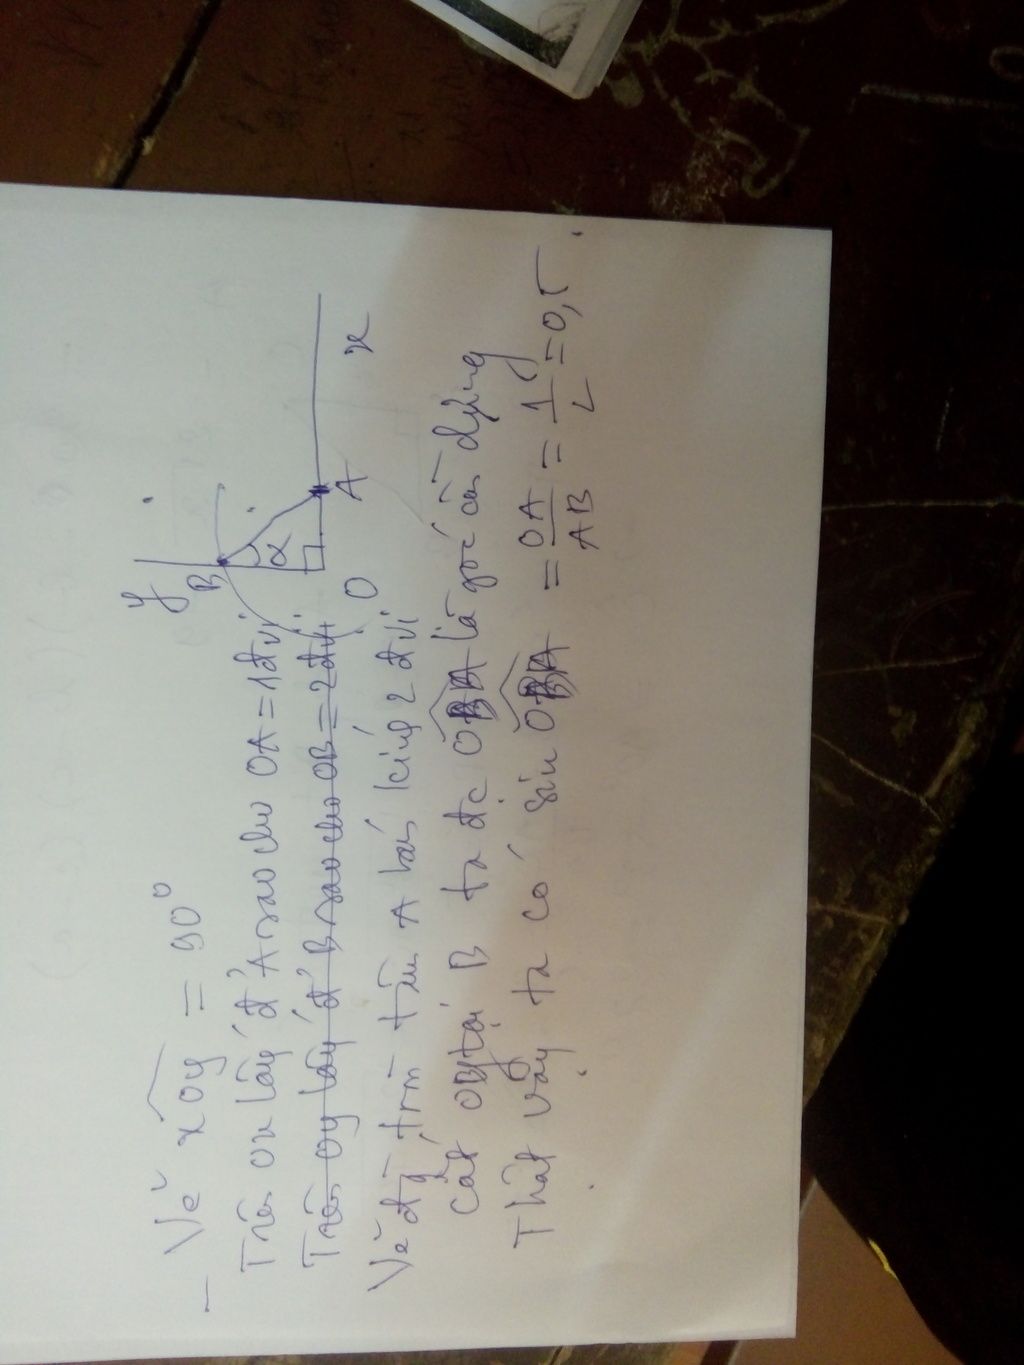 y
B
α
O
A
x
- Vẽ xOy = 90°
Trên Ox lấy đ' A sao cho OA = 1 đvị
Trên Oy lấy đ' B sao cho OB = 2 đvị
Vẽ đg tròn tâm A bán kính 2 đvị
cắt Oy tại B ta đc OBA là góc cần dựng
Thật vậy ta có sin OBA = OA/AB = 1/2 = 0,5.